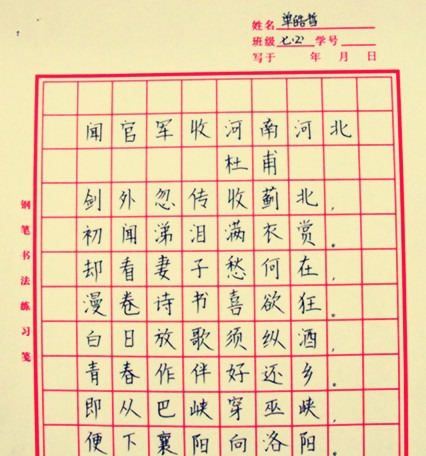 姓名 单皓哲
班级 七(2) 学号
写于 年 月 日
闻官军收河南河北
杜甫
剑外忽传收蓟北,
初闻涕泪满衣赏。
却看妻子愁何在,
漫卷诗书喜欲狂。
白日放歌须纵酒,
青春作伴好还乡。
即从巴峡穿巫峡,
便下襄阳向洛阳。
钢笔书法练习笺